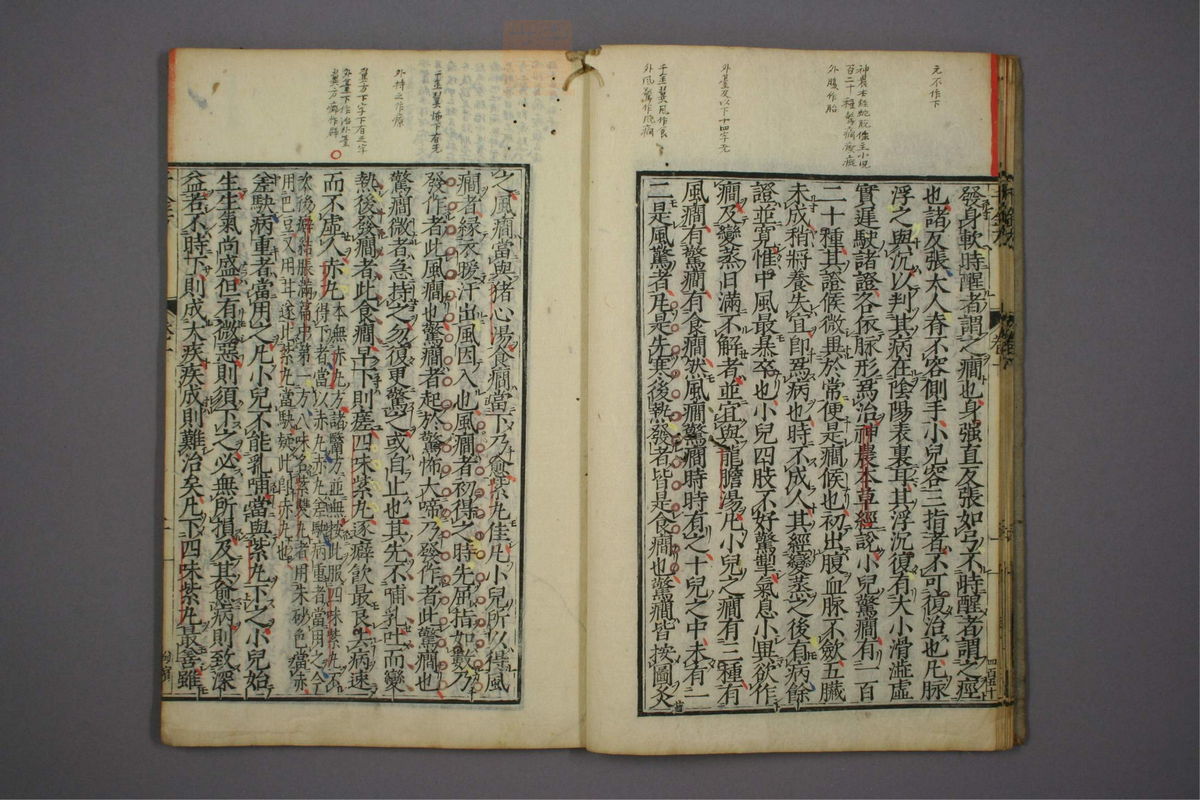 發身軟時醒者謂之癇也身强直反張如弓不時醒者謂之痙
也諸反張大人脊下容側手小兒容三指者不可復治也凡脉
浮之與沉以判其病在陰陽表裏耳其浮沉復有大小滑澁虛
實遲駃諸證各依脉形爲治神農本草經說小兒驚癇有一百
二十種其證候微異於常便是癇候也初出腹血脉不歛五臟
未成稍將養失宜即爲病也時不成人其經變蒸之後有病餘
證並寛惟中風最暴卒也小兒四肢不好驚掣氣息小異欲作
癇及變蒸日滿不解者並宜與龍膽湯凡小兒之癇有三種有
風癇有驚癇有食癇然風癇驚癇時時有之十兒之中未有一
二是風驚者凡是先寒後熱發者皆是食癇也驚癇皆按圖灸
之風癇當與猪心湯食癇當下乃愈紫丸佳凡小兒所以得風
癇者緣衣暖汗出風因入也風癇者初得之時先屈指如數乃
發作者此風癇也驚癇者起於驚怖大啼乃發作者此驚癇也
驚癇微者急持之勿復更驚之或自止也其先不哺乳吐而變
熱後發癇者此食癇早下則瘥四味紫丸逐癖飲最良去病速
而不虛人赤丸本無赤丸方諸醫方並無按此服四味紫丸不
得下者當以赤丸赤丸差駃病重者當用之今
次後癖結脹滿篇中第一方八味名紫雙丸者用朱砂色當赤
用巴豆又用甘遂比紫丸當駃疑此即赤丸也
差駃病重者當用之凡小兒不能乳哺當與紫丸下之小兒始
生生氣尚盛但有微惡則須下之必無所損及其愈病則致深
益若不時下則成大疾疾成則難治矣凡下四味紫丸最善雖
元不作下
神農本經蛇胶條主小兒
百二十種驚癇瘈瘲
外腹作胎
外臺及以下十四字无
千金翼風作食
外風驚作風癇
千金翼怖下有无
外持之作療
翼方下字下有三字
外臺下作治外臺
翼方癖作澼